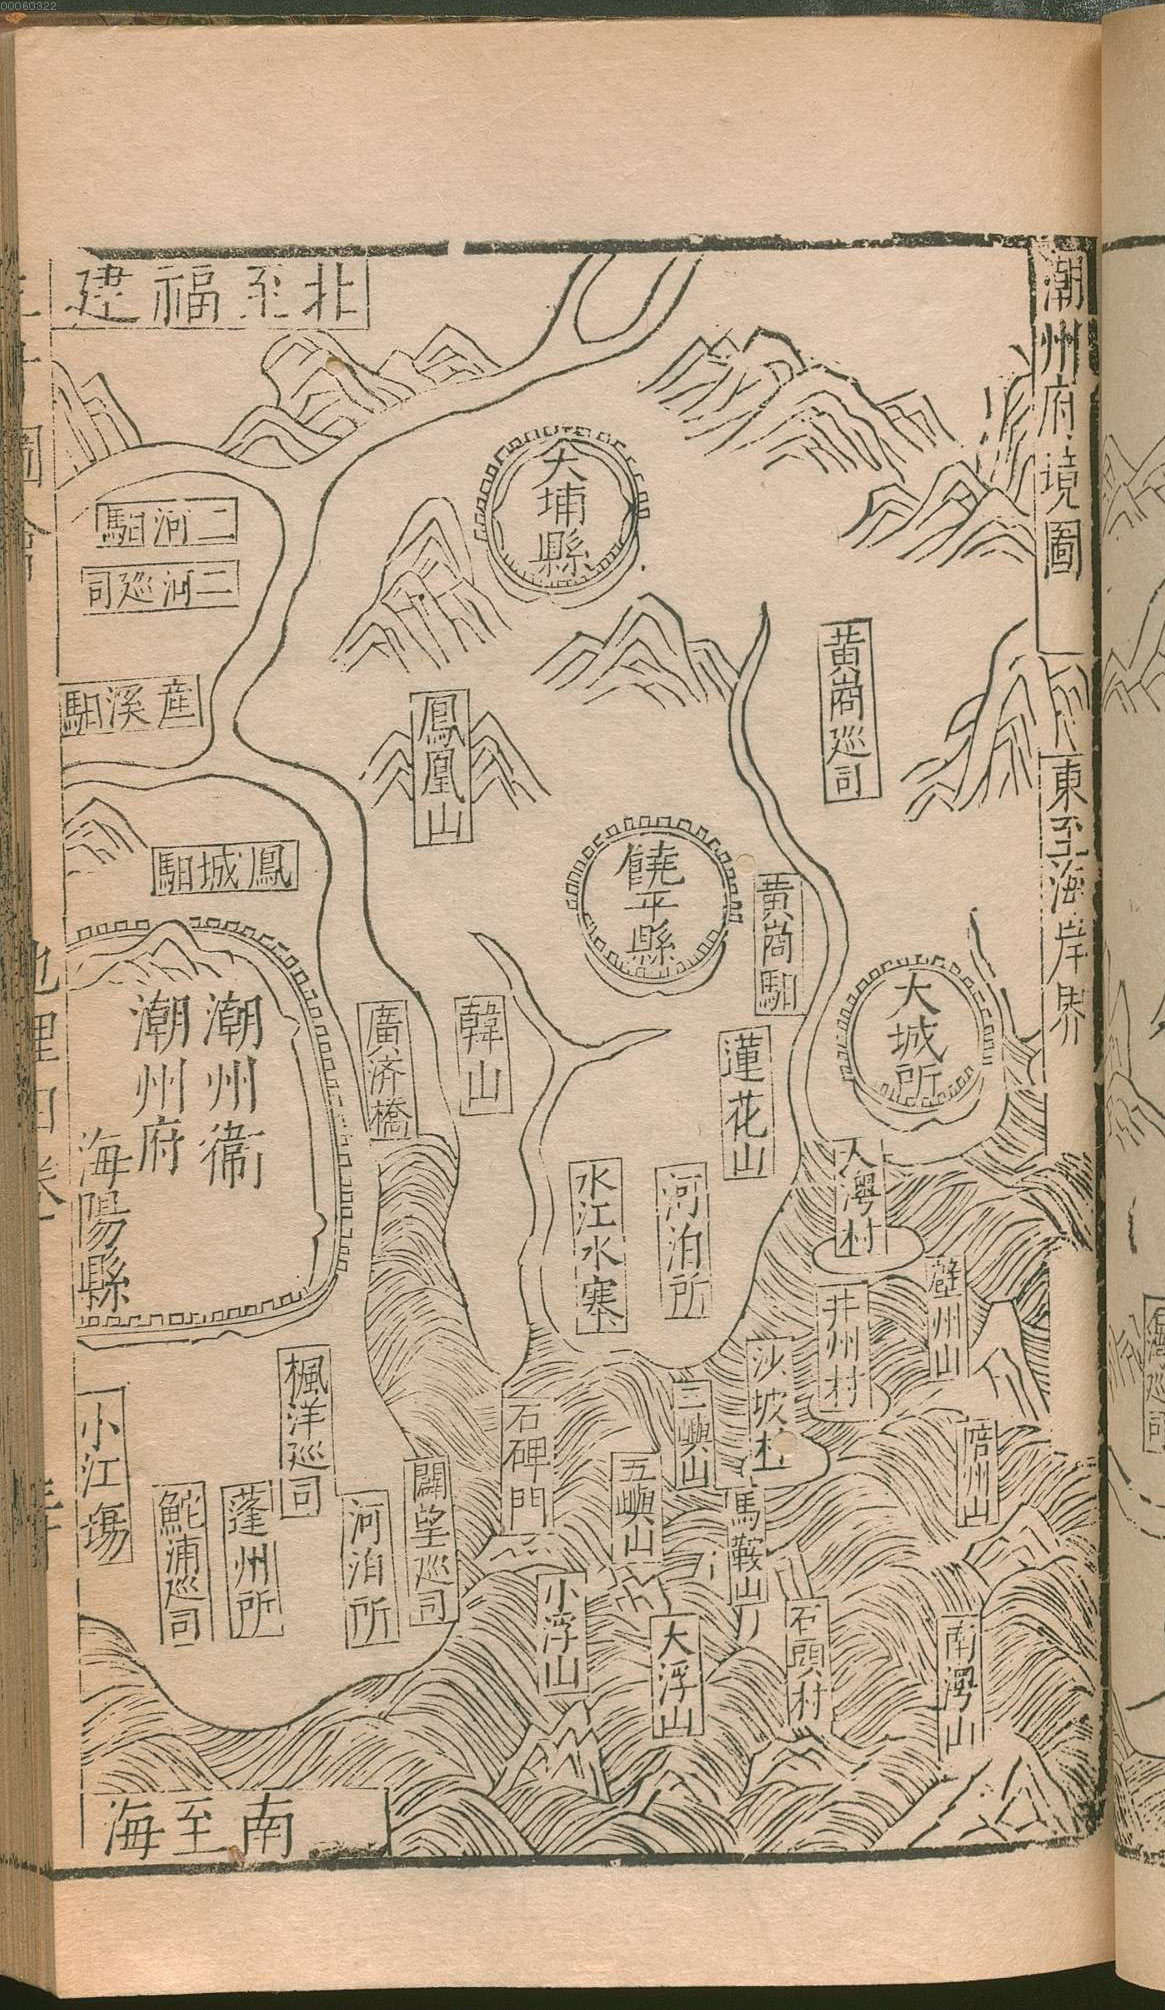 00060322
潮州府境圖
東至海岸界
北至福建
南至海
大埔縣
二河馹
二河巡司
産溪馹
鳳凰山
黄崗巡司
鳳城馹
饒平縣
黄崗馹
大城所
潮州衞
潮州府
海陽縣
廣济橋
韓山
蓮花山
水江水寨
河泊所
大澳村
井州村
壁州山
沙坡村
三嶼山
五嶼山
石碑門
馬鞍山
石頭村
南澳山
大浮山
小浮山
楓洋巡司
闢望巡司
河泊所
蓬州所
鮀浦巡司
小江塲